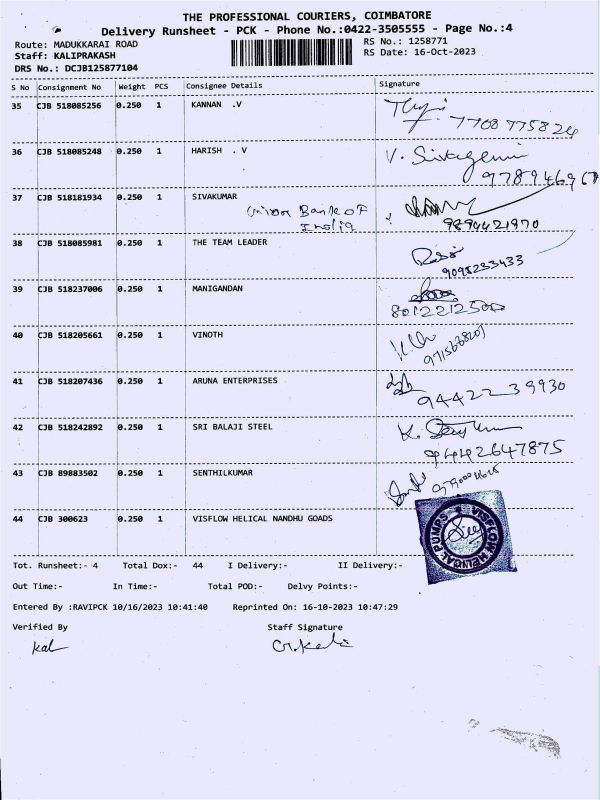 THE PROFESSIONAL COURIERS, COIMBATORE
Delivery Runsheet - PCK - Phone No.:0422-3505555 - Page No.:4
Route: MADUKKARAI ROAD
RS No.: 1258771
Staff: KALIPRAKASH
RS Date: 16-Oct-2023
DRS No.: DCJB125877104
S No Consignment No Weight PCS Consignee Details Signature
35 CJB 518085256 0.250 1 KANNAN .V
7708775824
36 CJB 518085248 0.250 1 HARISH . V
V.
37 CJB 518181934 0.250 1 SIVAKUMAR
Union Bank of
India
9894421970
38 CJB 518085981 0.250 1 THE TEAM LEADER
9095233433
39 CJB 518237006 0.250 1 MANIGANDAN
8012212500
40 CJB 518205661 0.250 1 VINOTH
41 CJB 518207436 0.250 1 ARUNA ENTERPRISES
9442239930
42 CJB 518242892 0.250 1 SRI BALAJI STEEL
K.
9442647875
43 CJB 89883502 0.250 1 SENTHILKUMAR
44 CJB 300623 0.250 1 VISFLOW HELICAL NANDHU GOADS
VISFLOW HELICAL PUMPS
Tot. Runsheet:- 4 Total Dox:- 44 I Delivery:- II Delivery:-
Out Time:- In Time:- Total POD:- Delvy Points:-
Entered By :RAVIPCK 10/16/2023 10:41:40 Reprinted On: 16-10-2023 10:47:29
Verified By Staff Signature
kal